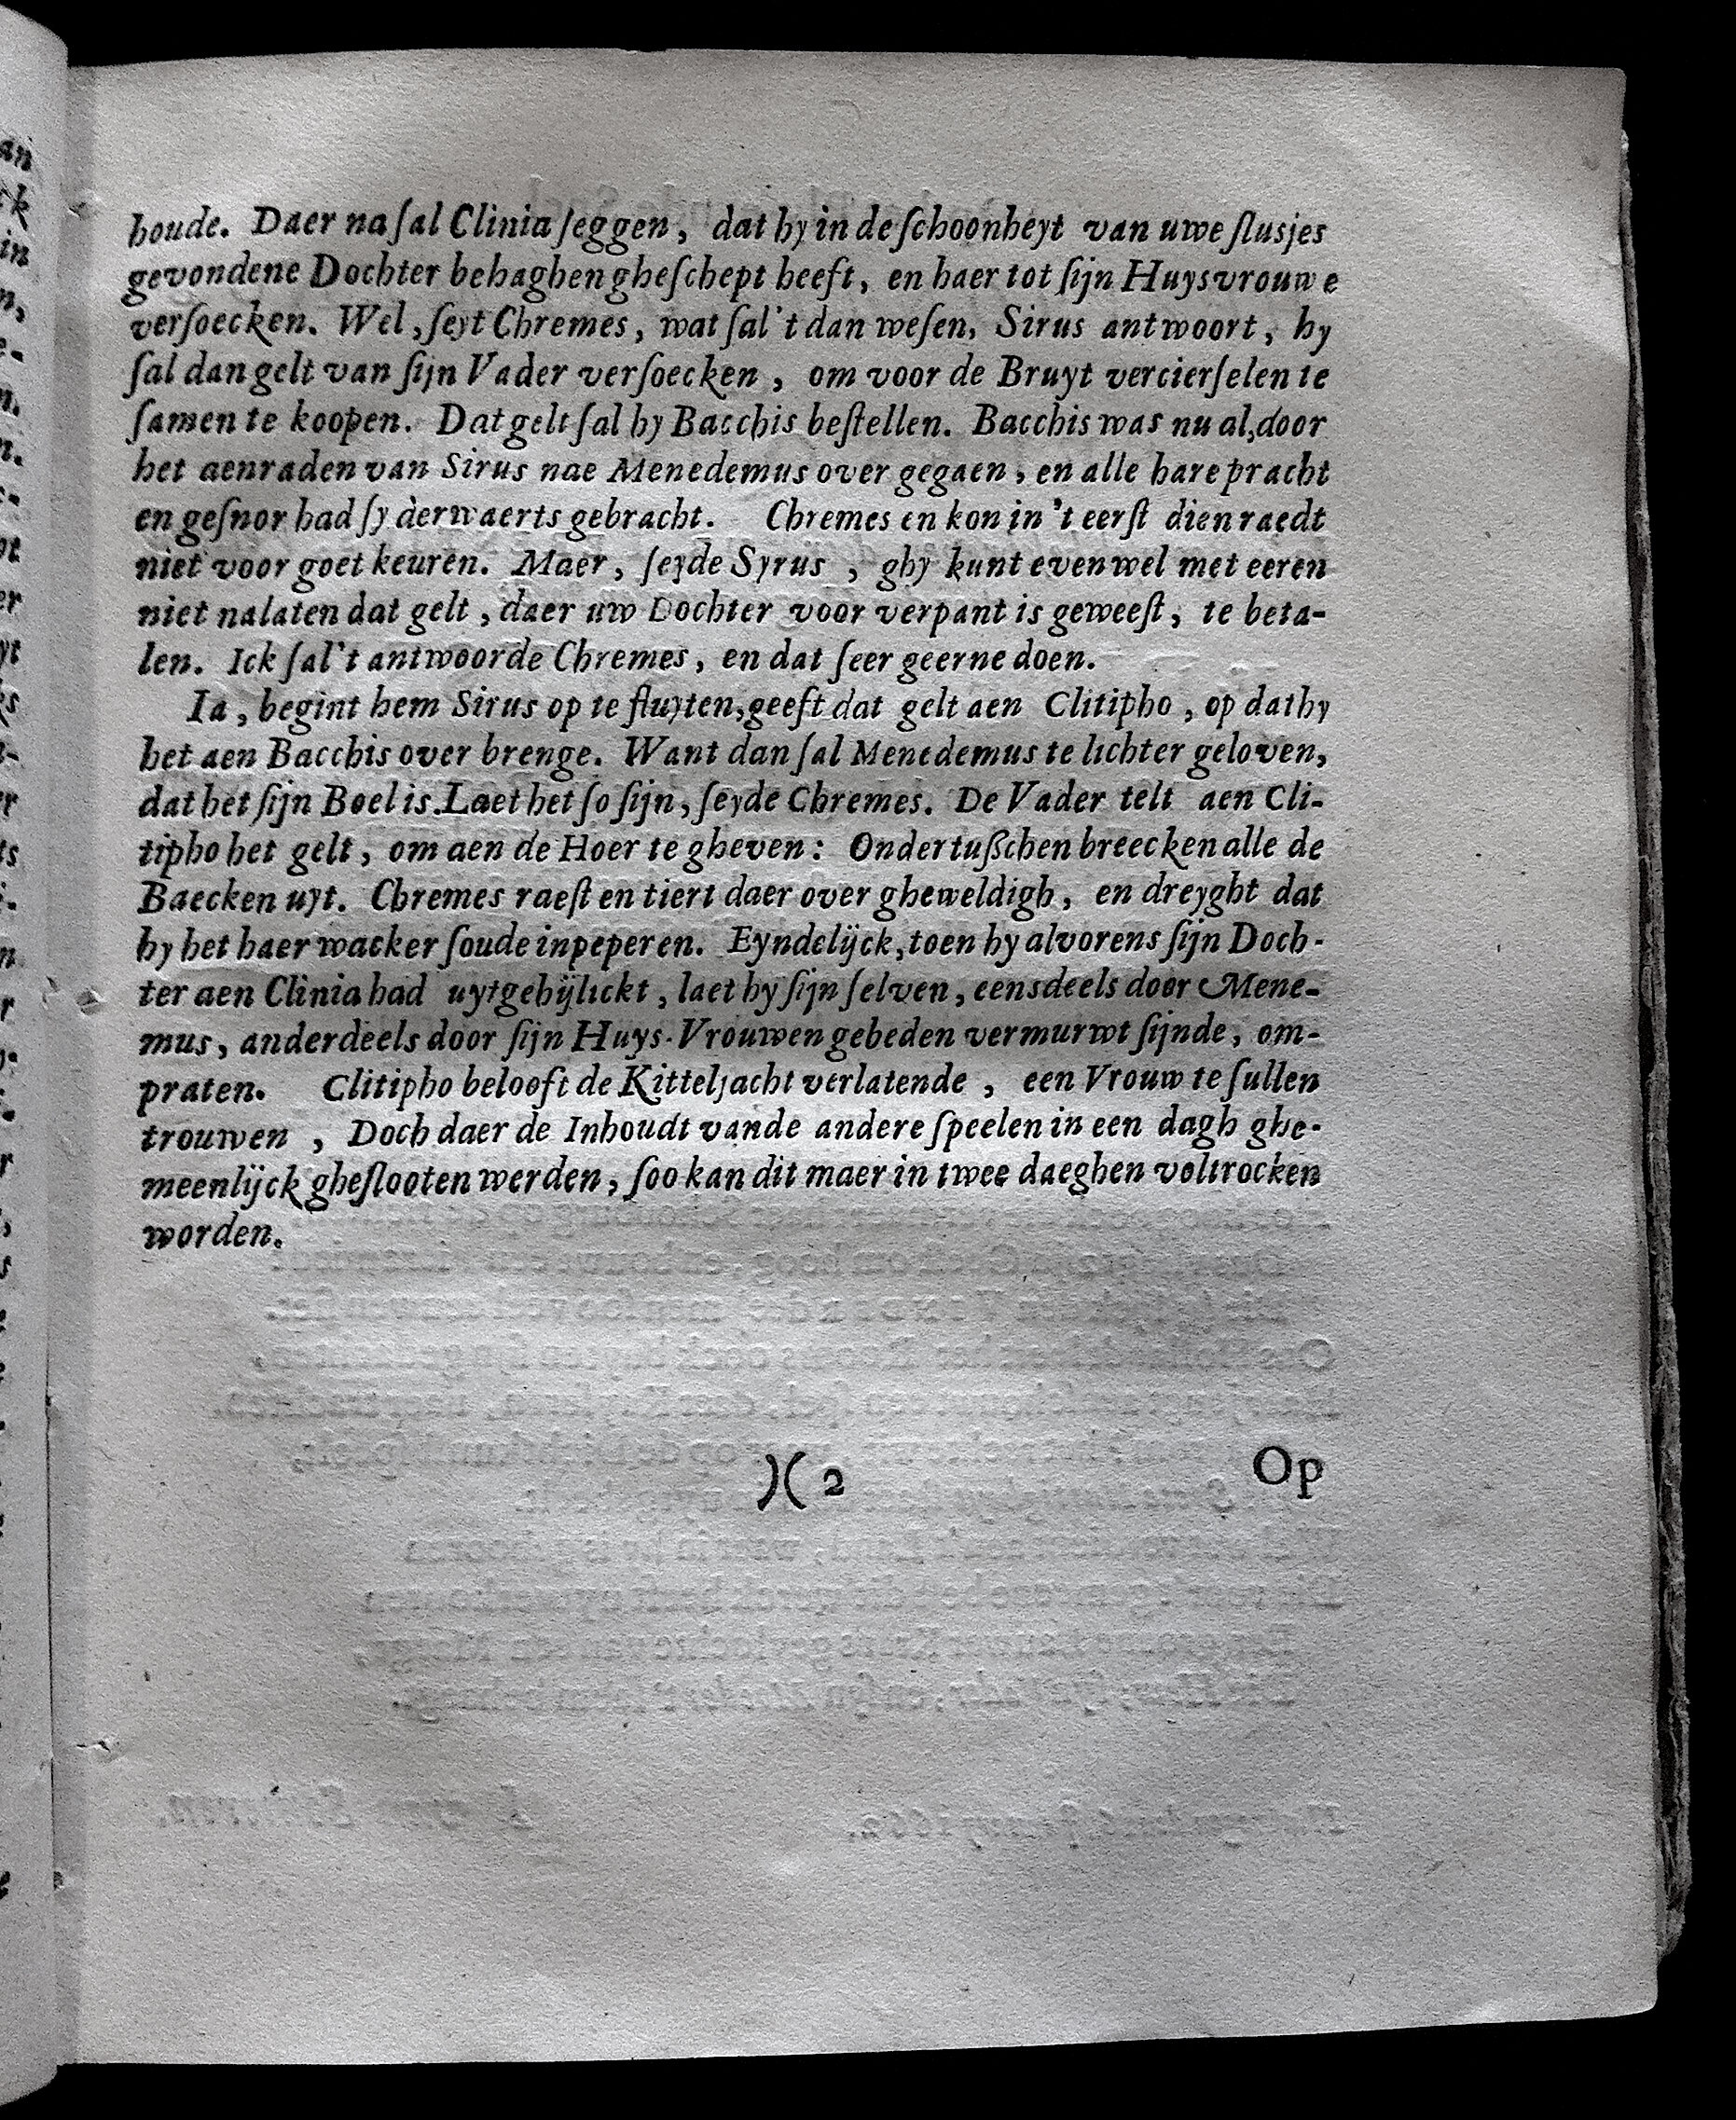 houde. Daer na ſal Clinia ſeggen, dat hy in de ſchoonheyt van uwe ſlusjes
gevondene Dochter behaghen gheſchept heeft, en haer tot ſijn Huysvrouwe
verſoecken. Wel, ſeyt Chremes, wat ſal't dan weſen, Sirus antwoort, hy
ſal dan gelt van ſijn Vader verſoecken, om voor de Bruyt vercierſelen te
ſamen te koopen. Dat gelt ſal hy Bacchis beſtellen. Bacchis was nu al, door
het aenraden van Sirus nae Menedemus over gegaen, en alle hare pracht
en geſnor had ſy derwaerts gebracht. Chremes en kon in 't eerſt dien raedt
niet voor goet keuren. Maer, ſeyde Syrus, ghy kunt evenwel met eeren
niet nalaten dat gelt, daer uw Dochter voor verpant is geweeſt, te beta-
len. Ick ſal't antwoorde Chremes, en dat ſeer geerne doen.
Ia, begint hem Sirus op te fluyten, geeft dat gelt aen Clitipho, op dat hy
het aen Bacchis over brenge. Want dan ſal Menedemus te lichter geloven,
dat het ſijn Boel is. Laet het ſo ſijn, ſeyde Chremes. De Vader telt aen Cli-
tipho het gelt, om aen de Hoer te gheven: Ondertuſſchen breecken alle de
Baecken uyt. Chremes raeſt en tiert daer over gheweldigh, en dreyght dat
hy het haer wacker ſoude inpeperen. Eyndelijck, toen hy alvorens ſijn Doch-
ter aen Clinia had uytgehijlickt, laet hy ſijn ſelven, eensdeels door Mene-
mus, anderdeels door ſijn Huys-Vrouwen gebeden vermurwt ſijnde, om-
praten. Clitipho belooft de Kitteljacht verlatende, een Vrouw te ſullen
trouwen, Doch daer de Inhoudt vande andere ſpeelen in een dagh ghe-
meenlijck gheſlooten werden, ſoo kan dit maer in twee daeghen voltrocken
worden.
)( 2 Op